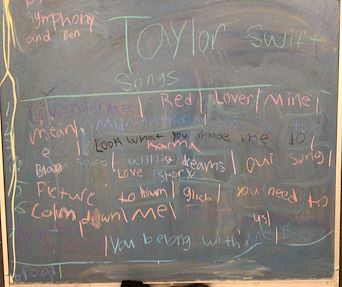 by
Symphony
and Ben
Taylor Swift
Songs
Lavender Haze | Red | Lover | Mine |
mean | Midnight rain
Look what you made me do
Karma
Blank Space | wildest dreams | our song |
Love Story
Picture to burn | glitch | you need to
Calm down | Me |
us |
You belong with Me |